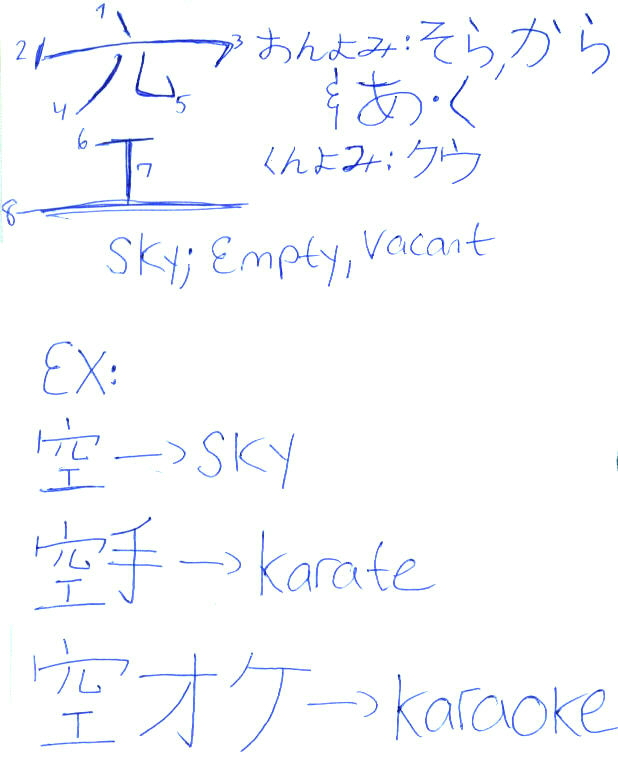 空 1 2 3 4 5 6 7 8
おんよみ:そら,から
& あ・く
くんよみ:クウ
Sky; Empty, Vacant
EX:
空→SKY
空手→karate
空オケ→karaoke